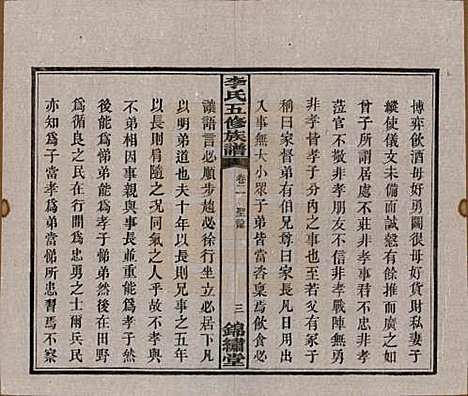 博弈飲酒毋好勇鬭很毋好貨財私妻子
縱使儀文未備而誠慤有餘推而廣之如
曾子所謂居處不莊非孝事君不忠非孝
蒞官不敬非孝朋友不信非孝戰陣無勇
非孝皆孝子分內之事也至若父有冢子
稱曰家督弟有伯兄尊曰家長凡日用出
入事無大小眾子弟皆當咨稟焉飲食必
李氏五修族譜
卷一
聖諭
三
錦繡堂
讓語言必順步趨必徐行坐立必居下凡
以明弟道也夫十年以長則兄事之五年
以長則肩隨之况同氣之人乎故不孝與
不弟相因事親與事長並重能為孝子然
後能為弟弟能為孝子弟弟然後在田野
為循良之民在行間為忠勇之士爾兵民
亦知為子當孝為弟當悌所患習焉不察